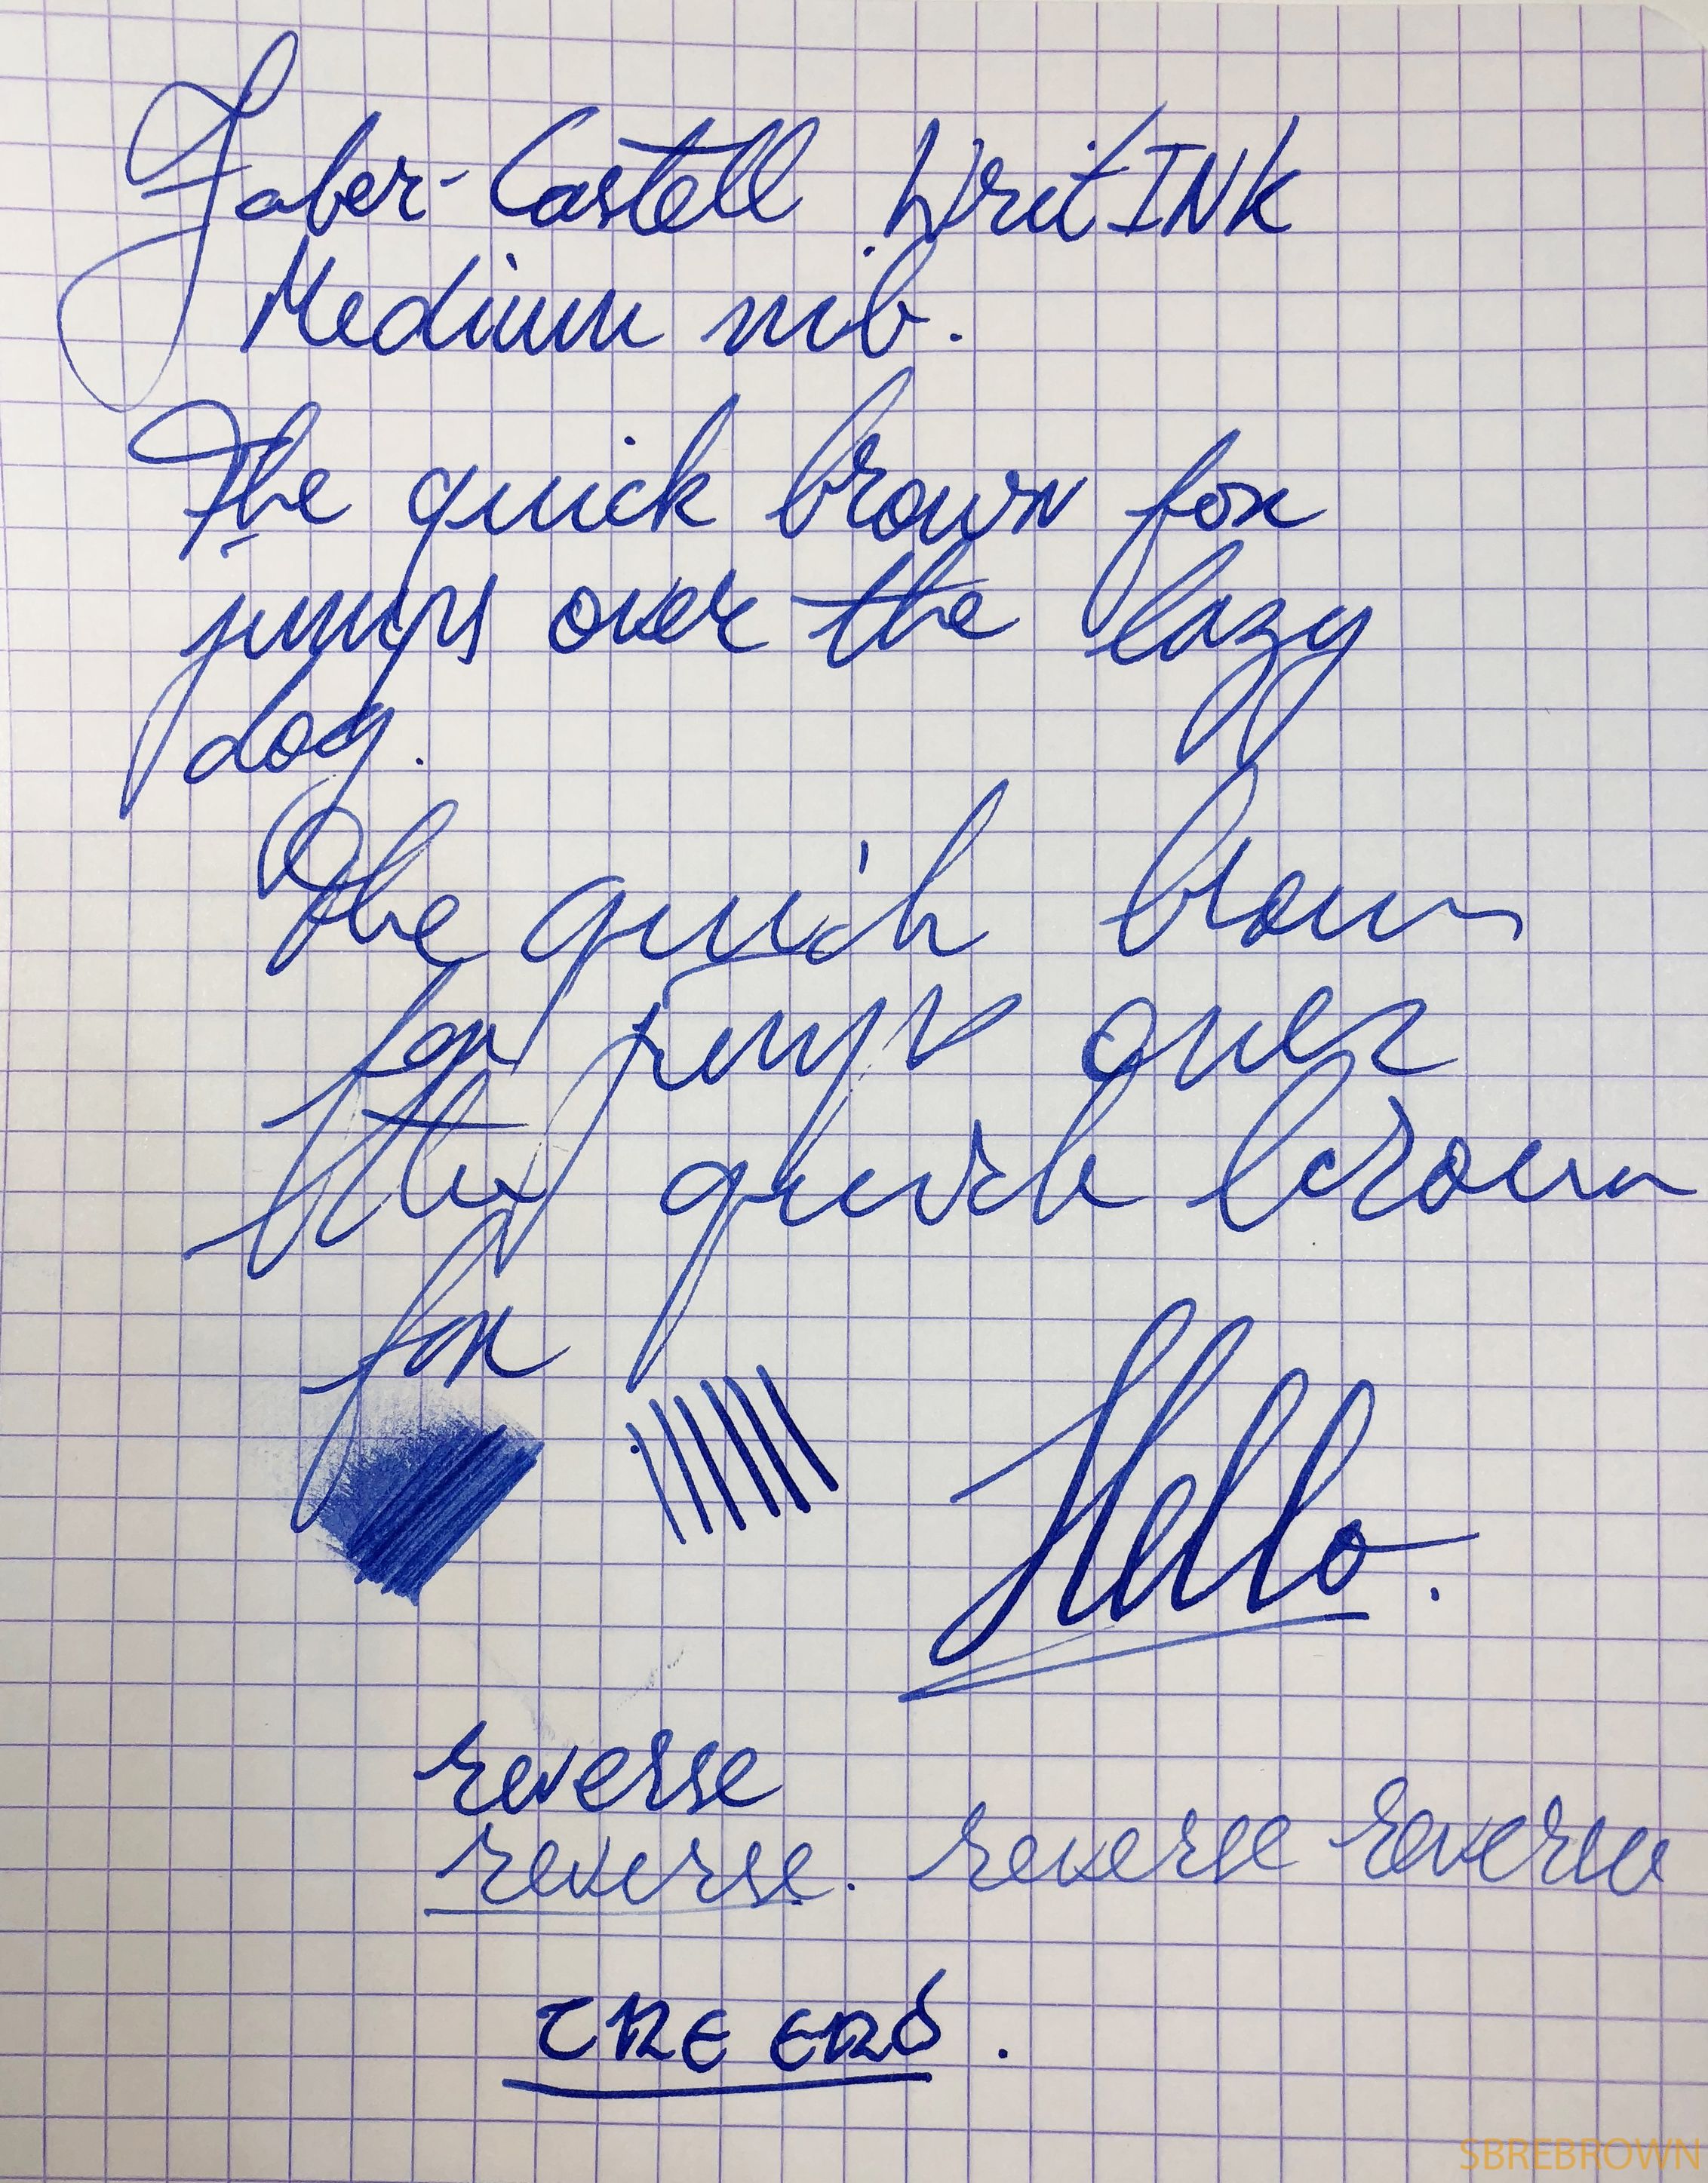 Faber-Castell WritINK
Medium nib.
The quick brown fox
jumps over the lazy
dog.
The quick brown
fox jumps over
the quick brown
fox
Hello.
reverse
reverse. reverse reverse
THE END.
SBREBROWN